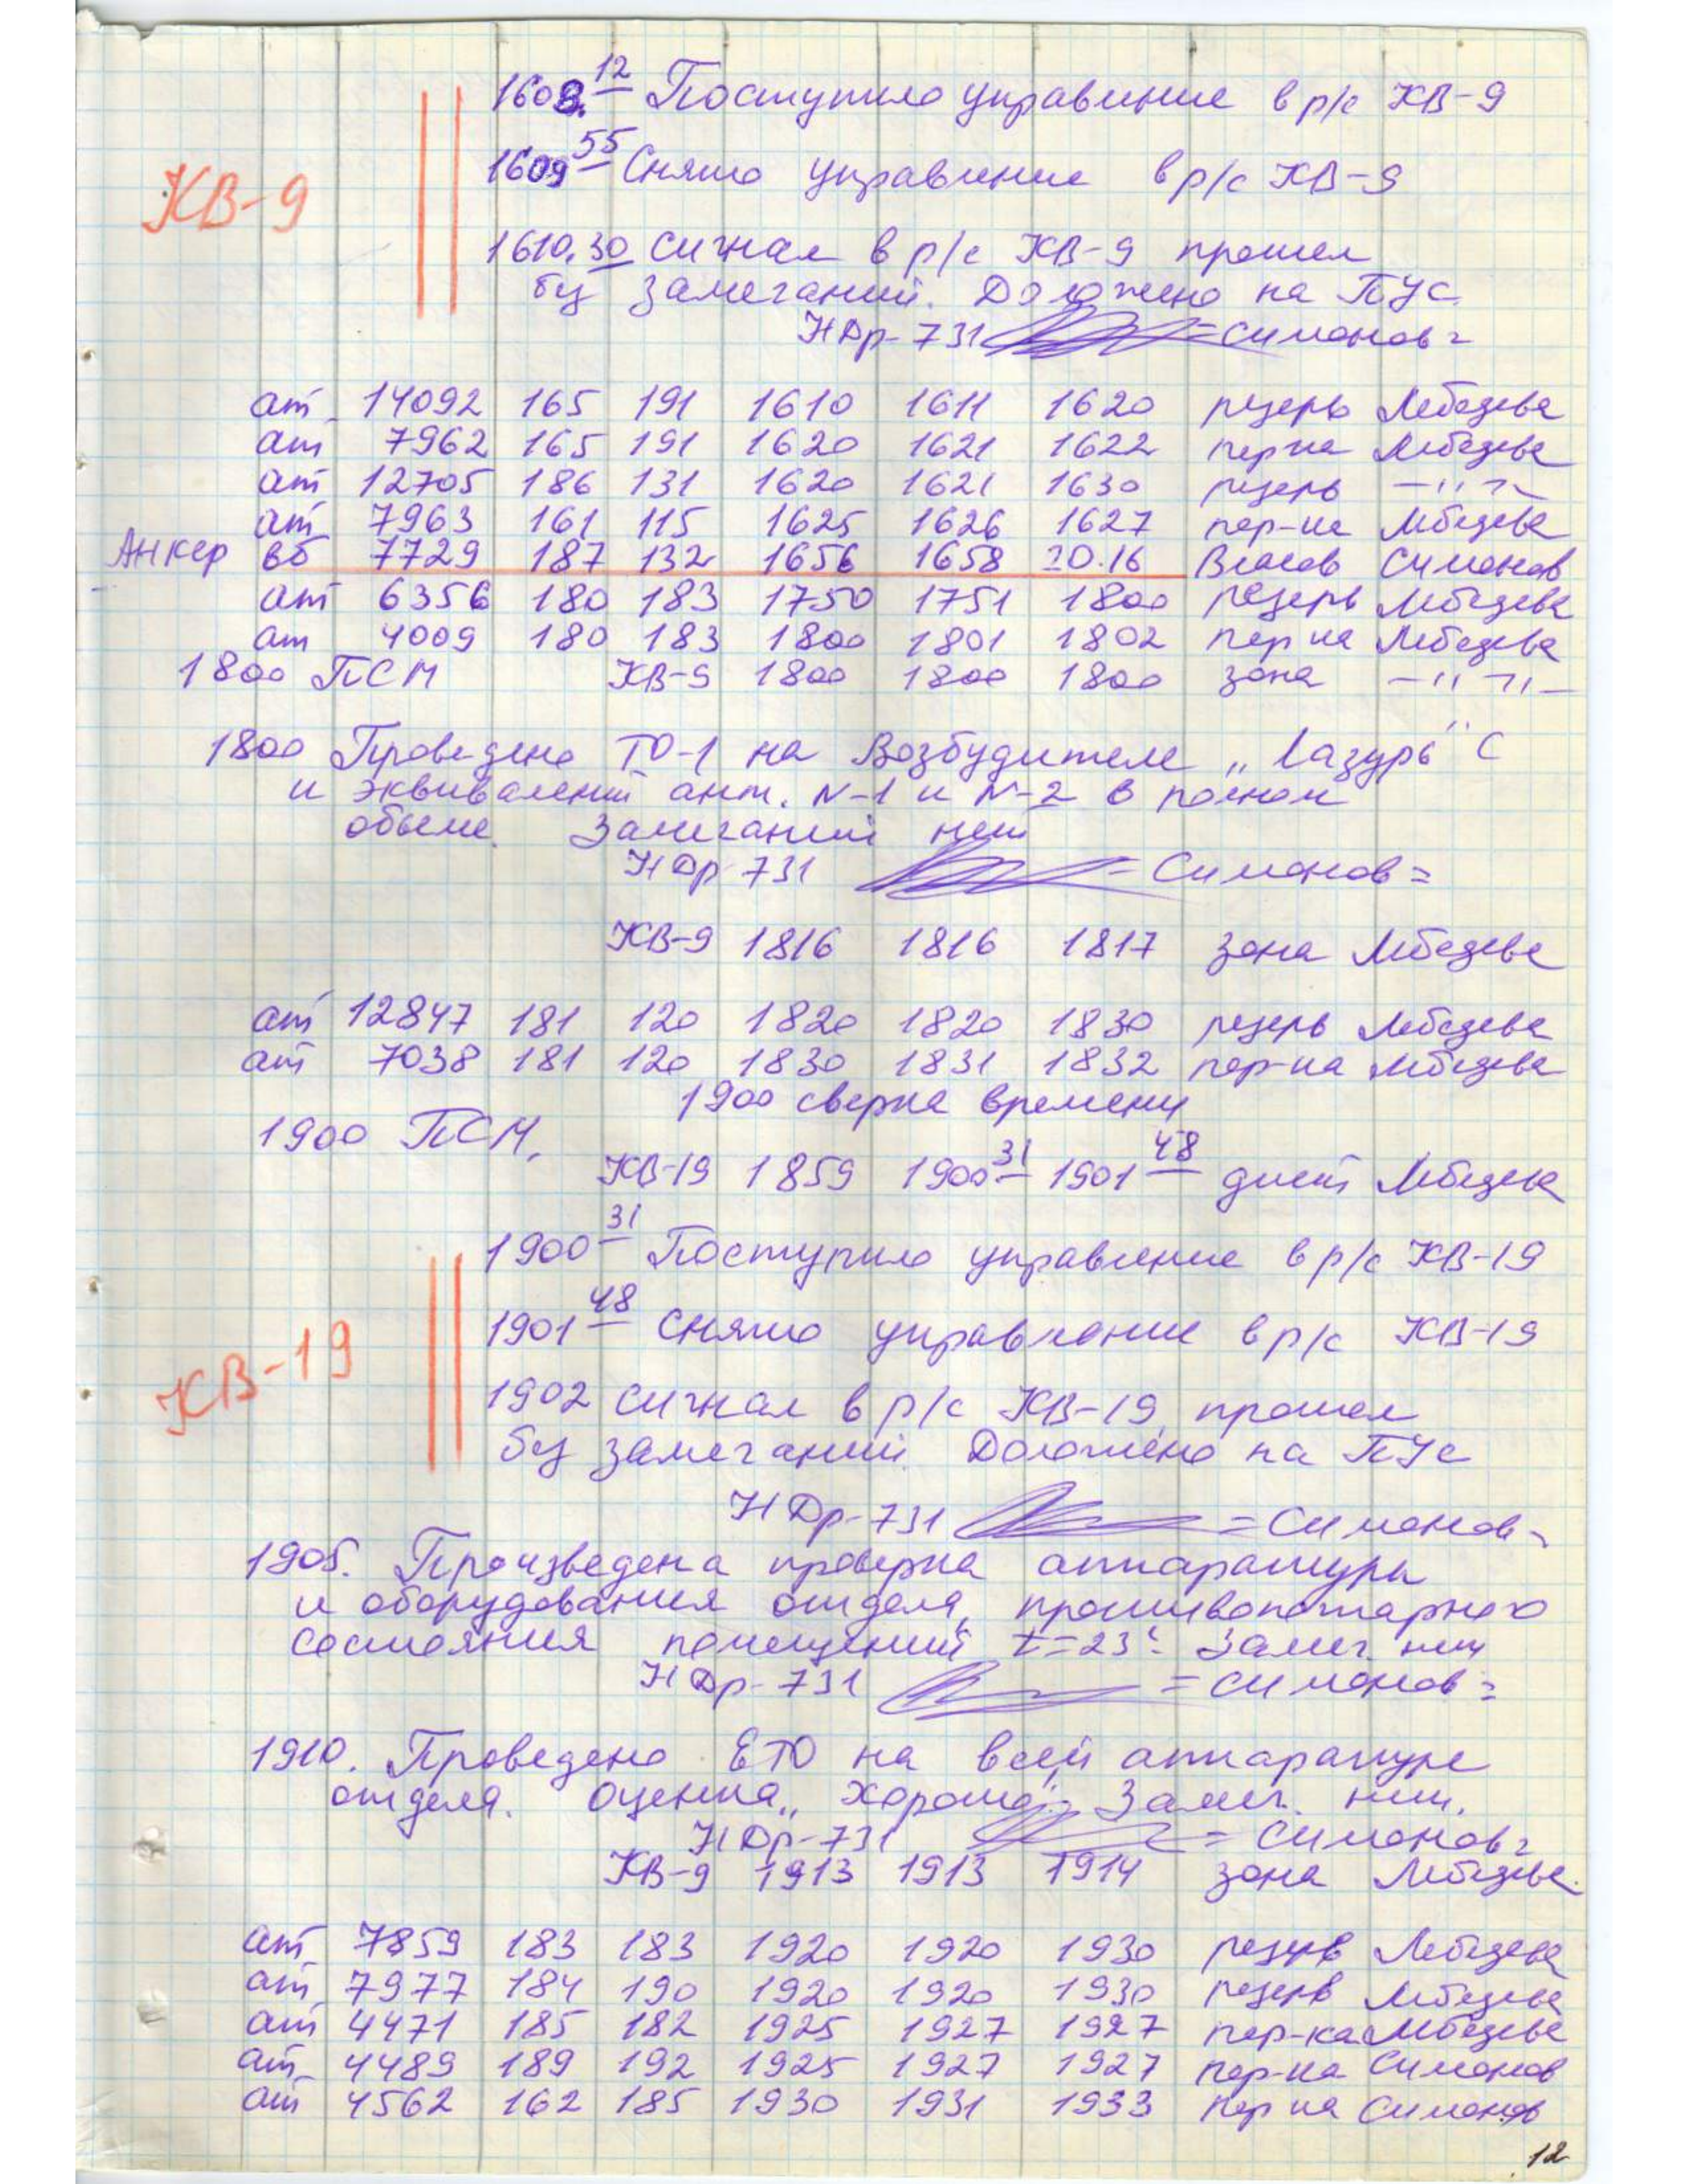 1608.12 Поступило управление в р/с КВ-9
1609 55 Снято управление в р/с КВ-9
КВ-9
1610.30 сигнал в р/с КВ-9 прошел
без замечаний. Доложено на ПУС.
НДр-731 =Симонов=
ат 14092 165 191 1610 1611 1620 резерв Лебедева
ат 7962 165 191 1620 1621 1622 пер-ка Лебедева
ат 12705 186 131 1620 1621 1630 резерв —"—"—
ат 7963 161 115 1625 1626 1627 пер-ка Лебедева
Анкер вб 7729 187 132 1656 1658 20.16 Власов Симонов
ат 6356 180 183 1750 1751 1800 резерв Лебедева
ат 4009 180 183 1800 1801 1802 пер-ка Лебедева
1800 ПСМ КВ-9 1800 1800 1800 зона —"—"—
1800 Проведено ТО-1 на Возбудителе „Лазурь" С
и эквивалент ант. N-1 и N-2 в полном
объеме. Замечаний нет
НДр 731 =Симонов=
КВ-9 1816 1816 1817 зона Лебедева
ат 12847 181 120 1820 1820 1830 резерв Лебедева
ат 7038 181 120 1830 1831 1832 пер-ка Лебедева
1900 сверка времени
1900 ПСМ.
КВ-19 1859 1900 31 1901 48 дист Лебедева
1900 31 Поступило управление в р/с КВ-19
1901 48 Снято управление в р/с КВ-19
КВ-19
1902 сигнал в р/с КВ-19 прошел
без замечаний. Доложено на ПУС
НДр-731 =Симонов=
1905. Произведена проверка аппаратуры
и оборудования отдела, противопожарного
состояния помещений t=23° Замеч. нет
НДр-731 =Симонов=
1910. Проведено ЕТО на всей аппаратуре
отдела. Оценка „хорошо". Замеч. нет.
НДр-731 =Симонов=
КВ-9 1913 1913 1914 зона Лебедева.
ат 7859 183 183 1920 1920 1930 резерв Лебедева
ат 7977 184 190 1920 1920 1930 резерв Лебедева
ат 4471 185 182 1925 1927 1927 пер-ка Лебедева
ат 4489 189 192 1925 1927 1927 пер-ка Симонов
ат 4562 162 185 1930 1931 1933 пер-ка Симонов
12